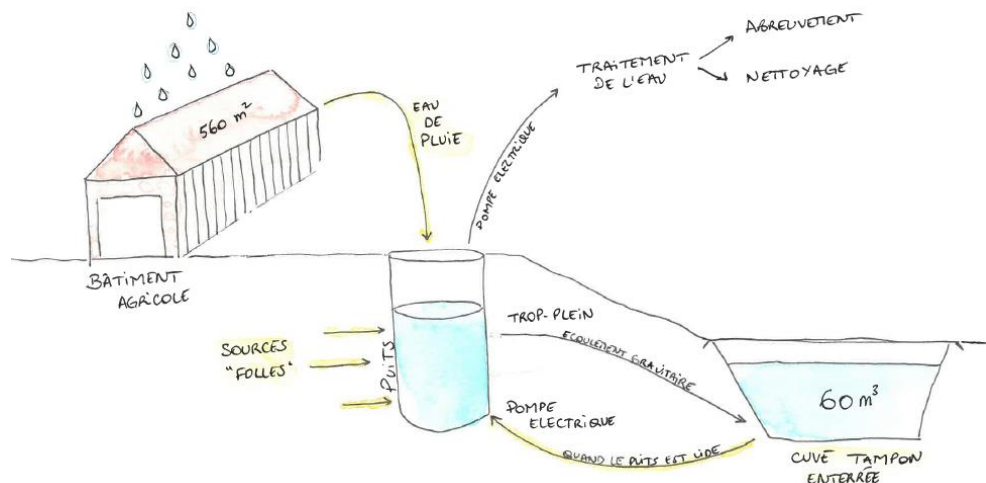 560 m²
EAU
DE
PLUIE
POMPE ELECTRIQUE
TRAITEMENT
DE L'EAU
ABREUVEMENT
NETTOYAGE
BÂTIMENT
AGRICOLE
SOURCES
"FOLLES"
PUITS
TROP-PLEIN
ECOULEMENT GRAVITAIRE
POMPE
ELECTRIQUE
QUAND LE PUITS EST VIDE
60 m³
CUVE TAMPON
ENTERRÉE